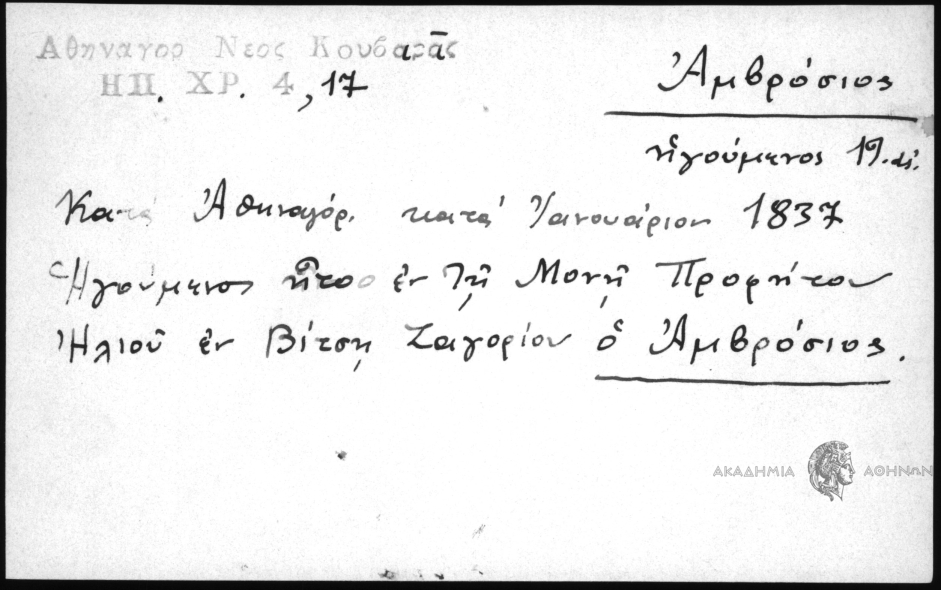 Αθηναγορ Νεος Κουβαρᾶς
ΗΠ. ΧΡ. 4, 17
Ἀμβρόσιος
ἡγούμενος 19. αἰ.
Κατὰ Ἀθηναγόρ. κατὰ Ἰανουάριον 1837
Ἡγούμενος ἦτο ἐν τῇ Μονῇ Προφήτου
Ἠλιοῦ ἐν Βίτσῃ Ζαγορίου ὁ Ἀμβρόσιος.
ΑΚΑΔΗΜΙΑ ΑΘΗΝΩΝ